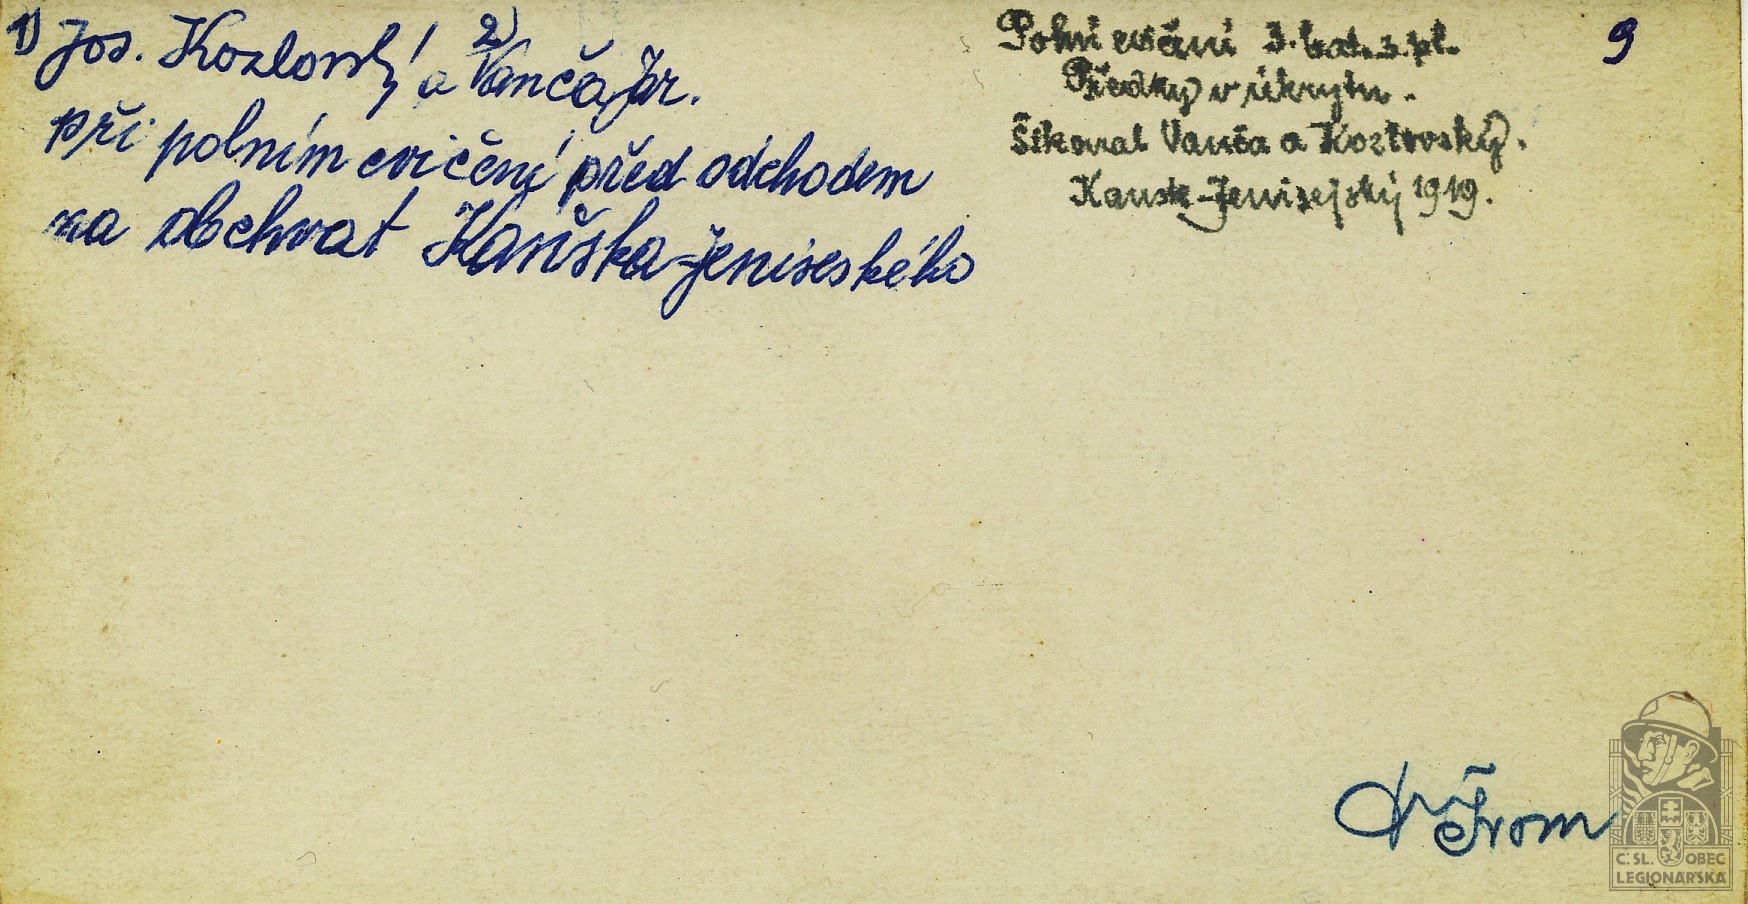 1) Jos. Kozlovský a 2) Vanča Jar.
při polním cvičení před odchodem
na obchvat Kaňska-jeniseského
Polní cvičení 3. bat. 3. pl.
Předky v úkrytu.
Šikoval Vanča a Kozlovský.
Kansk-Jenisejský 1919.
9
From
Č. SL. OBEC
LEGIONÁŘSKÁ